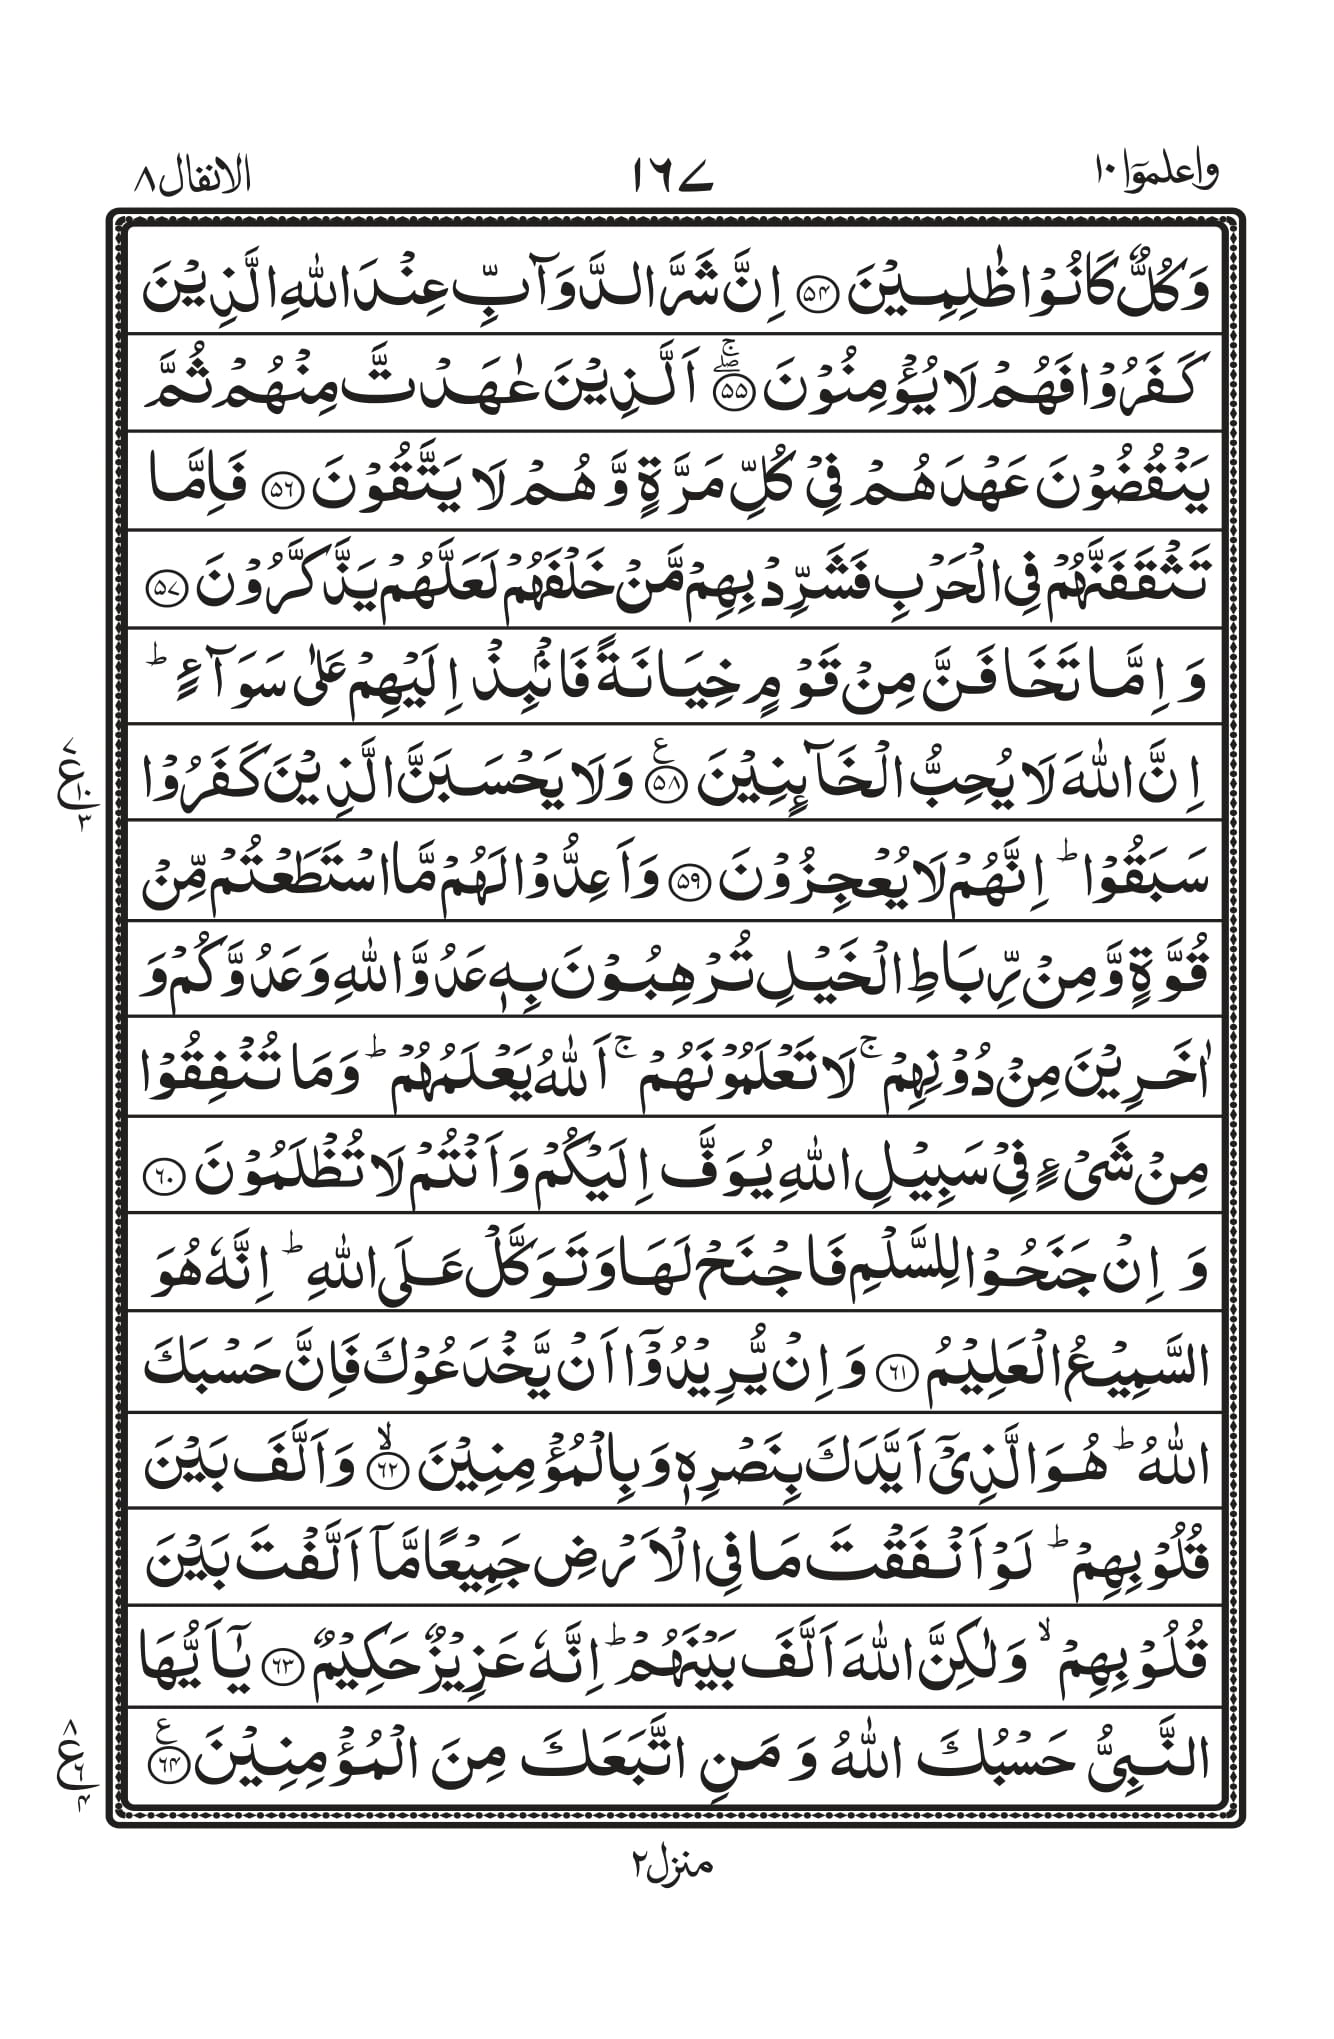 واعلموٓا ١٠
١٦٧
الانفال ٨
وَكُلٌّ كَانُوۡا ظٰلِمِيۡنَ ﴿۵۴﴾ اِنَّ شَرَّ الدَّوَآبِّ عِنۡدَ اللّٰهِ الَّذِيۡنَ
كَفَرُوۡا فَهُمۡ لَا يُؤۡمِنُوۡنَ ﴿۵۵﴾ ۖۚ اَلَّذِيۡنَ عٰهَدْتَّ مِنۡهُمۡ ثُمَّ
يَنۡقُضُوۡنَ عَهۡدَهُمۡ فِىۡ كُلِّ مَرَّةٍ وَّهُمۡ لَا يَتَّقُوۡنَ ﴿۵۶﴾ فَاِمَّا
تَثۡقَفَنَّهُمۡ فِى الۡحَرۡبِ فَشَرِّدۡ بِهِمۡ مَّنۡ خَلۡفَهُمۡ لَعَلَّهُمۡ يَذَّكَّرُوۡنَ ﴿۵۷﴾
وَاِمَّا تَخَافَنَّ مِنۡ قَوۡمٍ خِيَانَةً فَانْۢبِذۡ اِلَيۡهِمۡ عَلٰى سَوَآءٍ ؕ
اِنَّ اللّٰهَ لَا يُحِبُّ الۡخَآٮِٕنِيۡنَ ﴿۵۸﴾ ع وَلَا يَحۡسَبَنَّ الَّذِيۡنَ كَفَرُوۡا
ع ٧ ١٠ ٣
سَبَقُوۡا ؕ اِنَّهُمۡ لَا يُعۡجِزُوۡنَ ﴿۵۹﴾ وَاَعِدُّوۡا لَهُمۡ مَّا اسۡتَطَعۡتُمۡ مِّنۡ
قُوَّةٍ وَّمِنۡ رِّبَاطِ الۡخَيۡلِ تُرۡهِبُوۡنَ بِهٖ عَدُوَّ اللّٰهِ وَعَدُوَّكُمۡ وَ
اٰخَرِيۡنَ مِنۡ دُوۡنِهِمۡ ۚ لَا تَعۡلَمُوۡنَهُمۡ ۚ اَللّٰهُ يَعۡلَمُهُمۡ ؕ وَمَا تُنۡفِقُوۡا
مِنۡ شَىۡءٍ فِىۡ سَبِيۡلِ اللّٰهِ يُوَفَّ اِلَيۡكُمۡ وَاَنۡتُمۡ لَا تُظۡلَمُوۡنَ ﴿۶۰﴾
وَاِنۡ جَنَحُوۡا لِلسَّلۡمِ فَاجۡنَحۡ لَهَا وَتَوَكَّلۡ عَلَى اللّٰهِ ؕ اِنَّهٗ هُوَ
السَّمِيۡعُ الۡعَلِيۡمُ ﴿۶۱﴾ وَاِنۡ يُّرِيۡدُوۡۤا اَنۡ يَّخۡدَعُوۡكَ فَاِنَّ حَسۡبَكَ
اللّٰهُ ؕ هُوَ الَّذِىۡۤ اَيَّدَكَ بِنَصۡرِهٖ وَبِالۡمُؤۡمِنِيۡنَ ﴿۶۲﴾ ۙ وَاَلَّفَ بَيۡنَ
قُلُوۡبِهِمۡ ؕ لَوۡ اَنۡفَقۡتَ مَا فِى الۡاَرۡضِ جَمِيۡعًا مَّاۤ اَلَّفۡتَ بَيۡنَ
قُلُوۡبِهِمۡ ۙ وَلٰكِنَّ اللّٰهَ اَلَّفَ بَيۡنَهُمۡ ؕ اِنَّهٗ عَزِيۡزٌ حَكِيۡمٌ ﴿۶۳﴾ يٰۤاَيُّهَا
النَّبِىُّ حَسۡبُكَ اللّٰهُ وَمَنِ اتَّبَعَكَ مِنَ الۡمُؤۡمِنِيۡنَ ﴿۶۴﴾ ع
ع ٨ ٦ ۴
منزل ٢